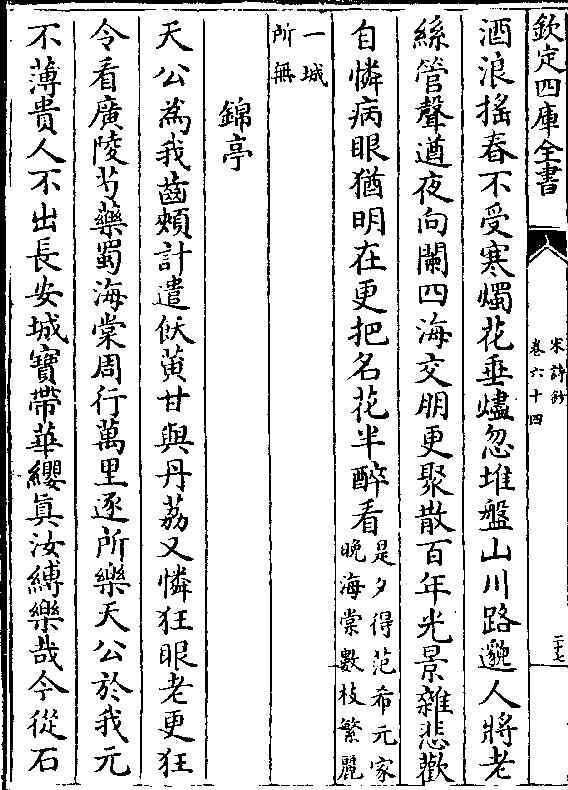 欽定四庫全書
宋詩鈔
卷六十四
二十七
酒浪搖春不受寒燭花垂燼忽堆盤山川路邈人將老
絲管聲遒夜向闌四海交朋更聚散百年光景雜悲歡
自憐病眼猶明在更把名花半醉看是夕得范希元家
晚海棠數枝繁麗
一城
所無
錦亭
天公為我齒頰計遣飫黄甘與丹荔又憐狂眼老更狂
令看廣陵芍藥蜀海棠周行萬里逐所樂天公於我元
不薄貴人不出長安城寶帶華纓真汝縛樂哉今從石